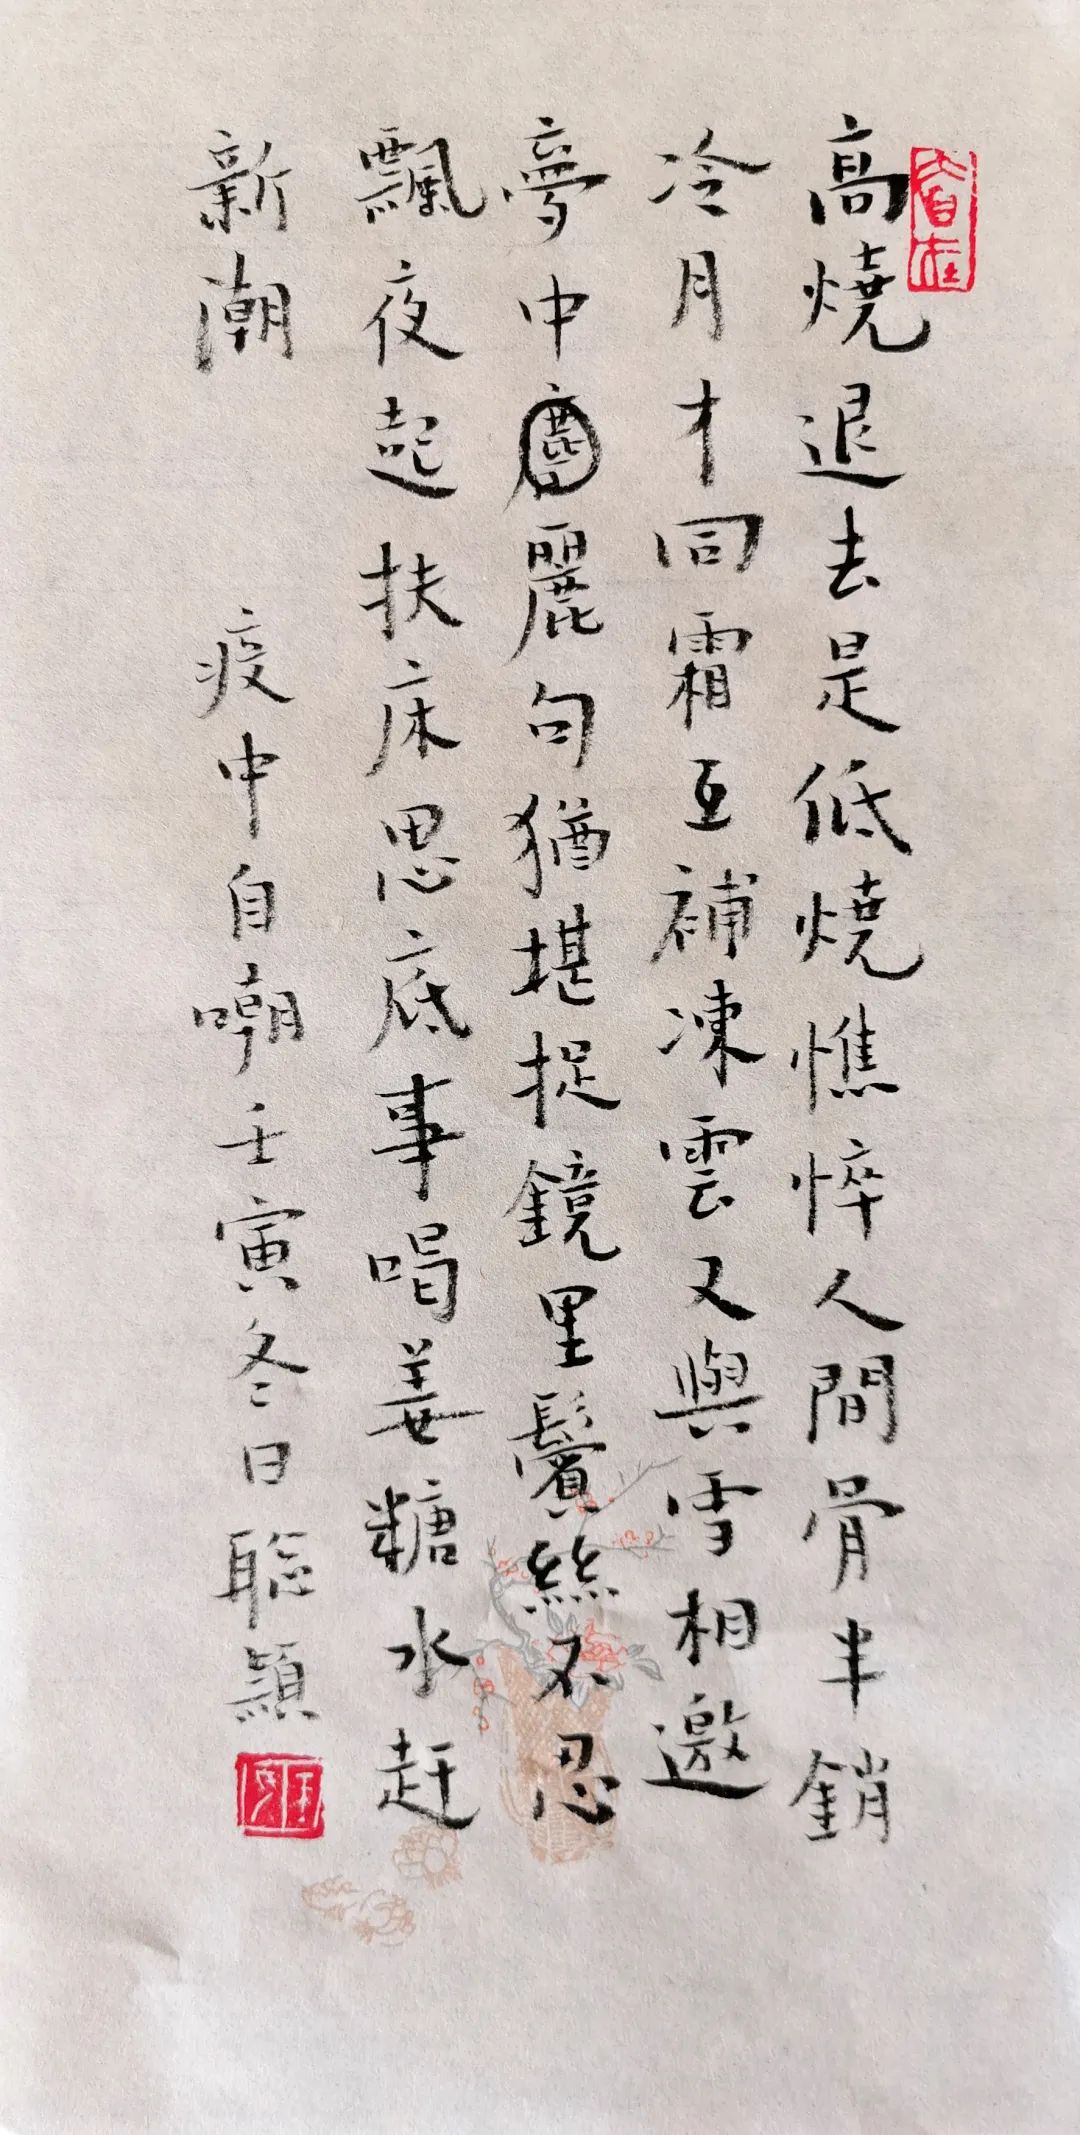 高燒退去是低燒憔悴人間骨半銷
冷月才同霜互補凍雲又與雪相邀
夢中麗句猶堪捉鏡里鬢絲不忍
飄夜起扶床思底事喝姜糖水赶
新潮
疫中自嘲壬寅冬日聪穎